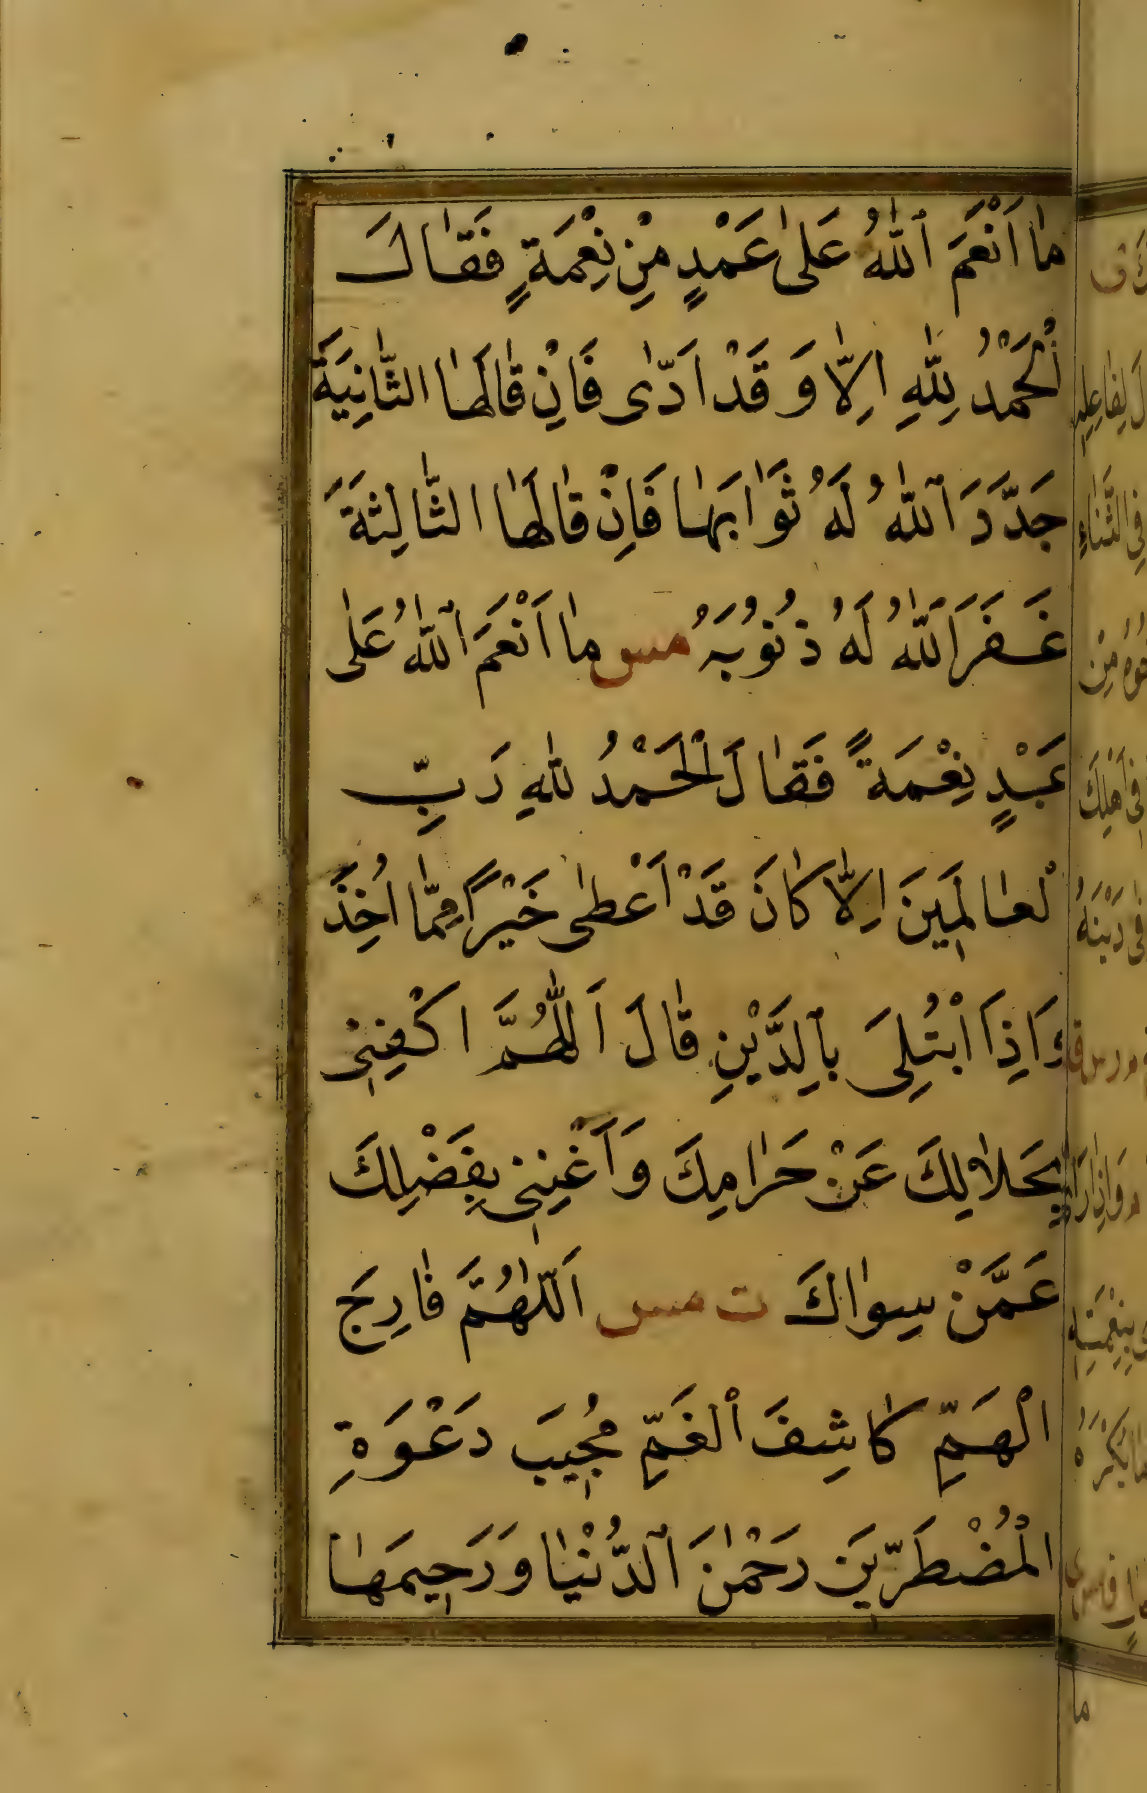 مٰا اَنْعَمَ ٱللّٰهُ عَلىٰ عَبْدٍ مِنْ نِعْمَةٍ فَقٰالَ
اُلْحَمْدُ لِلّٰهِ اِلاّٰ وَ قَدْ اَدّٰى فَاِنْ قٰالَهٰا الثّٰانِيَةَ
جَدَّدَ ٱللّٰهُ لَهُ ثَوٰابَهٰا فَاِنْ قٰالَهٰا الثّٰالِثَةَ
غَفَرَ اَللّٰهُ لَهُ ذُنُوُبَهُ مس مٰا اَنْعَمَ ٱللّٰهُ عَلىٰ
عَبْدٍ نِعْمَةً فَقٰالَ اْلحَمْدُ لِلّٰهِ رَبِّ
لْعٰالَمِينَ اِلاّٰ كٰانَ قَدْ اَعْطىٰ خَيْرًا مِمّٰا اُخِذَ
وَاِذَا ابْتُلِىَ بِٱلدَّيْنِ قٰالَ اَللّٰهُمَّ اكْفِنِى
بِحَلاٰلِكَ عَنْ حَرٰامِكَ وَاَغْنِنِى بِفَضْلِكَ
عَمَّنْ سِوٰاكَ ت مس اَللّٰهُمَّ فٰارِجَ
الْهَمِّ كٰاشِفَ ٱلْغَمِّ مُجِيبَ دَعْوَةِ
الْمُضْطَرّينَ رَحْمٰنَ ٱلدُّنْيٰا وَرَحِيمَهٰا